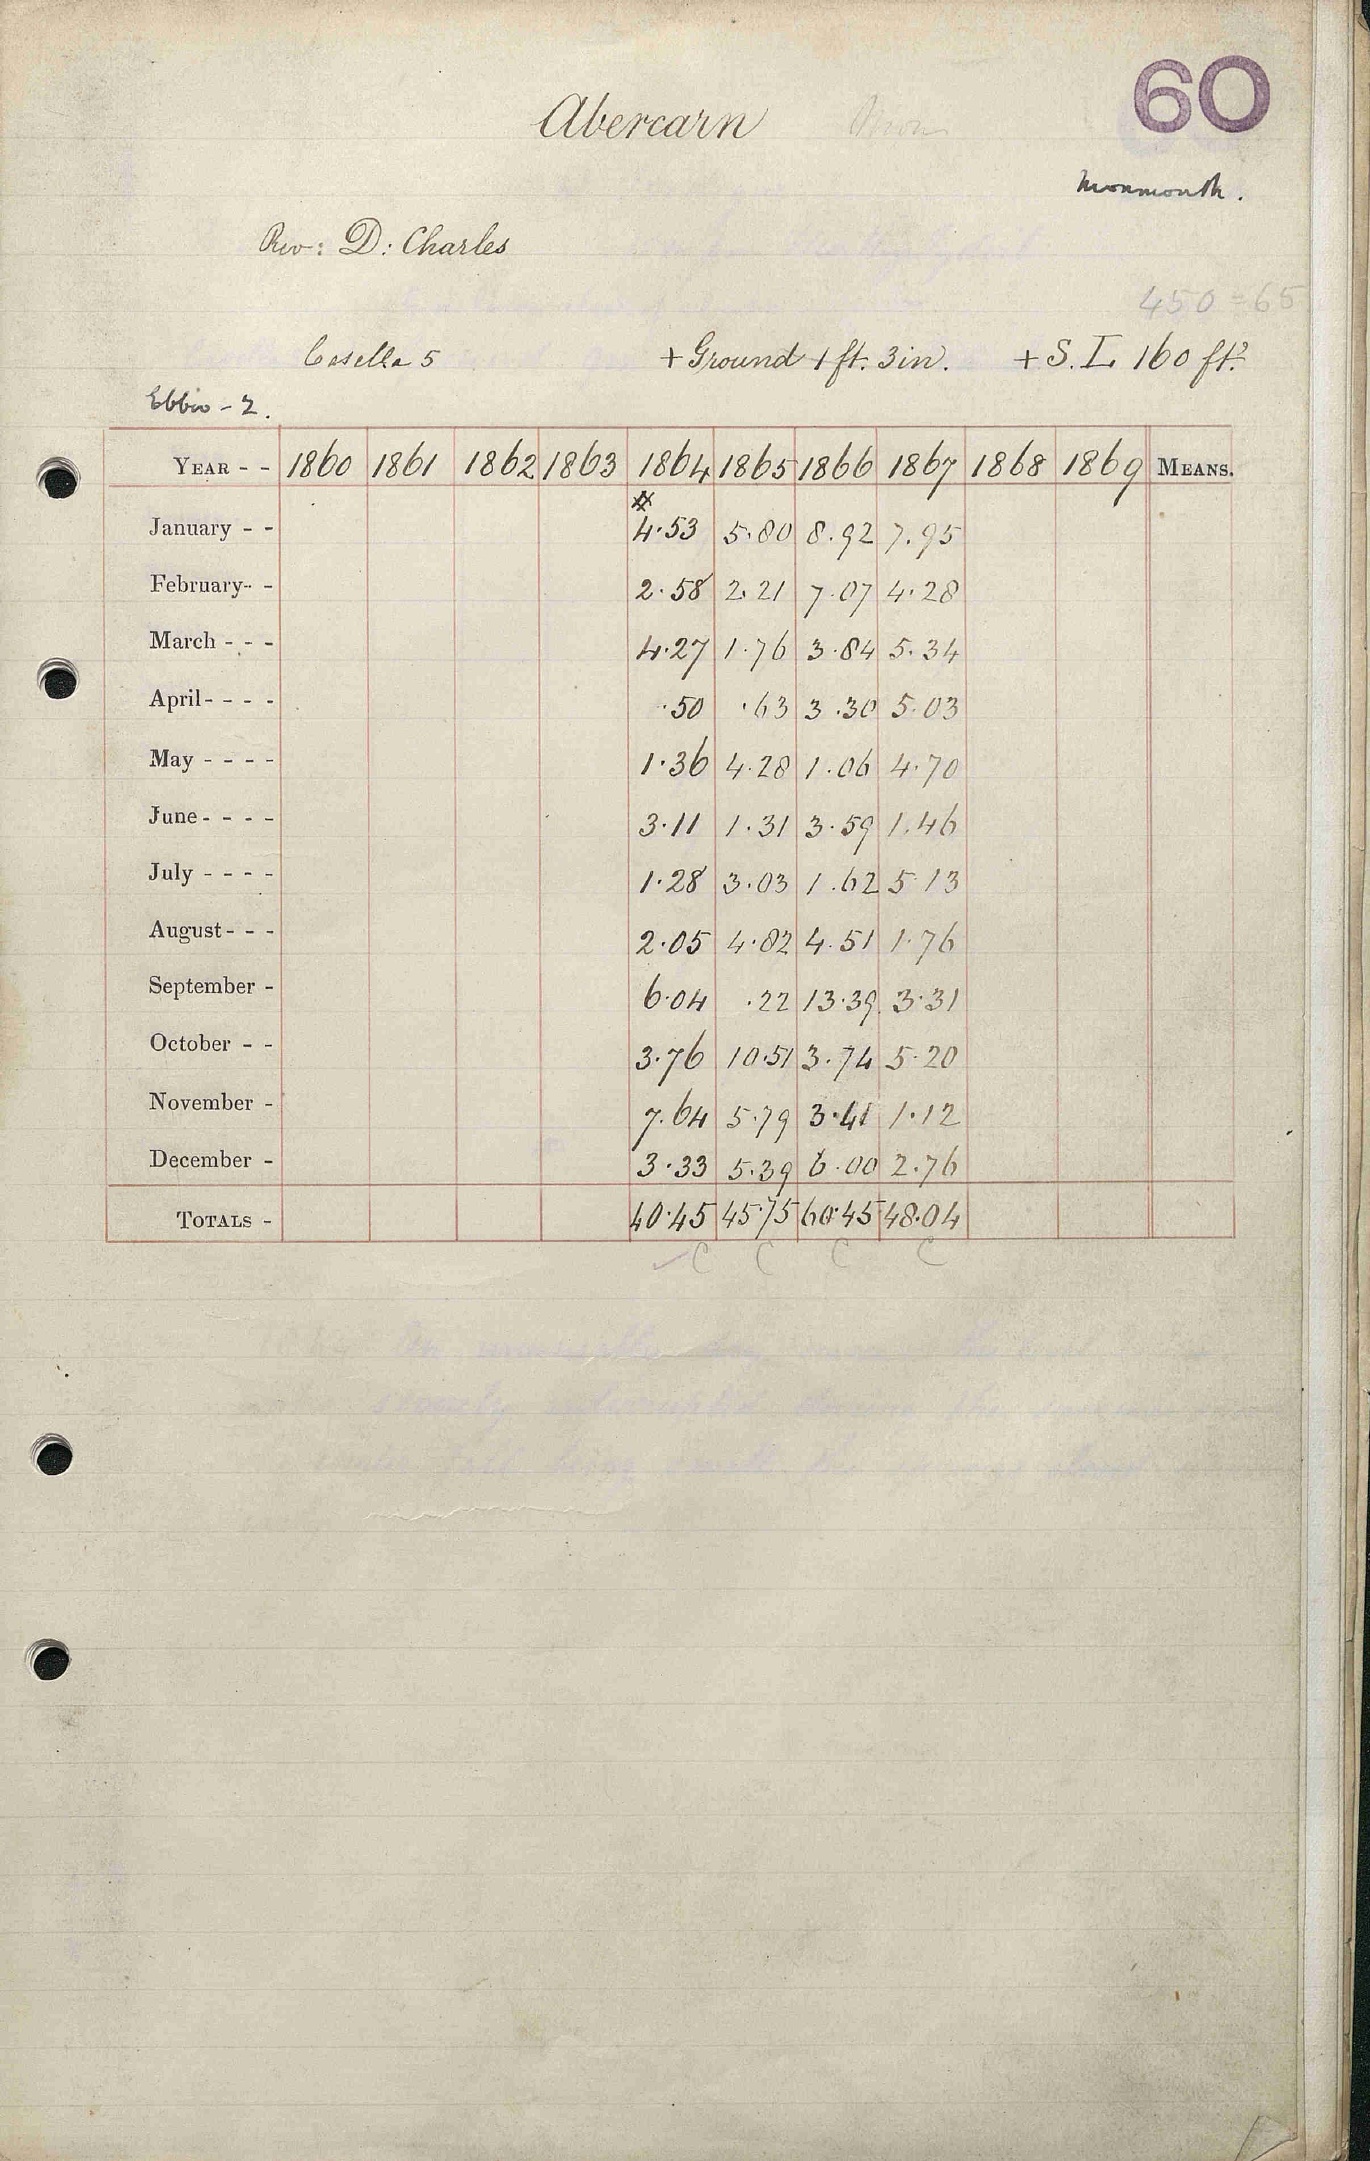 60
Abercarn Mon
Monmouth.
Rev: D: Charles
450 = 65
Casella 5 + Ground 1 ft. 3 in. + S. L. 160 ft?
Ebbw - 2.
YEAR - - 1860 1861 1862 1863 1864 1865 1866 1867 1868 1869 MEANS.
January - - 4.53 5.80 8.92 7.95
February - - 2.58 2.21 7.07 4.28
March - - - 4.27 1.76 3.84 5.34
April - - - - .50 .63 3.30 5.03
May - - - - 1.36 4.28 1.06 4.70
June - - - - 3.11 1.31 3.59 1.46
July - - - - 1.28 3.03 1.62 5.13
August - - - 2.05 4.82 4.51 1.76
September - 6.04 .22 13.39 3.31
October - - 3.76 10.51 3.74 5.20
November - 7.64 5.79 3.41 1.12
December - 3.33 5.39 6.00 2.76
TOTALS - 40.45 45.75 60.45 48.04
C C C C